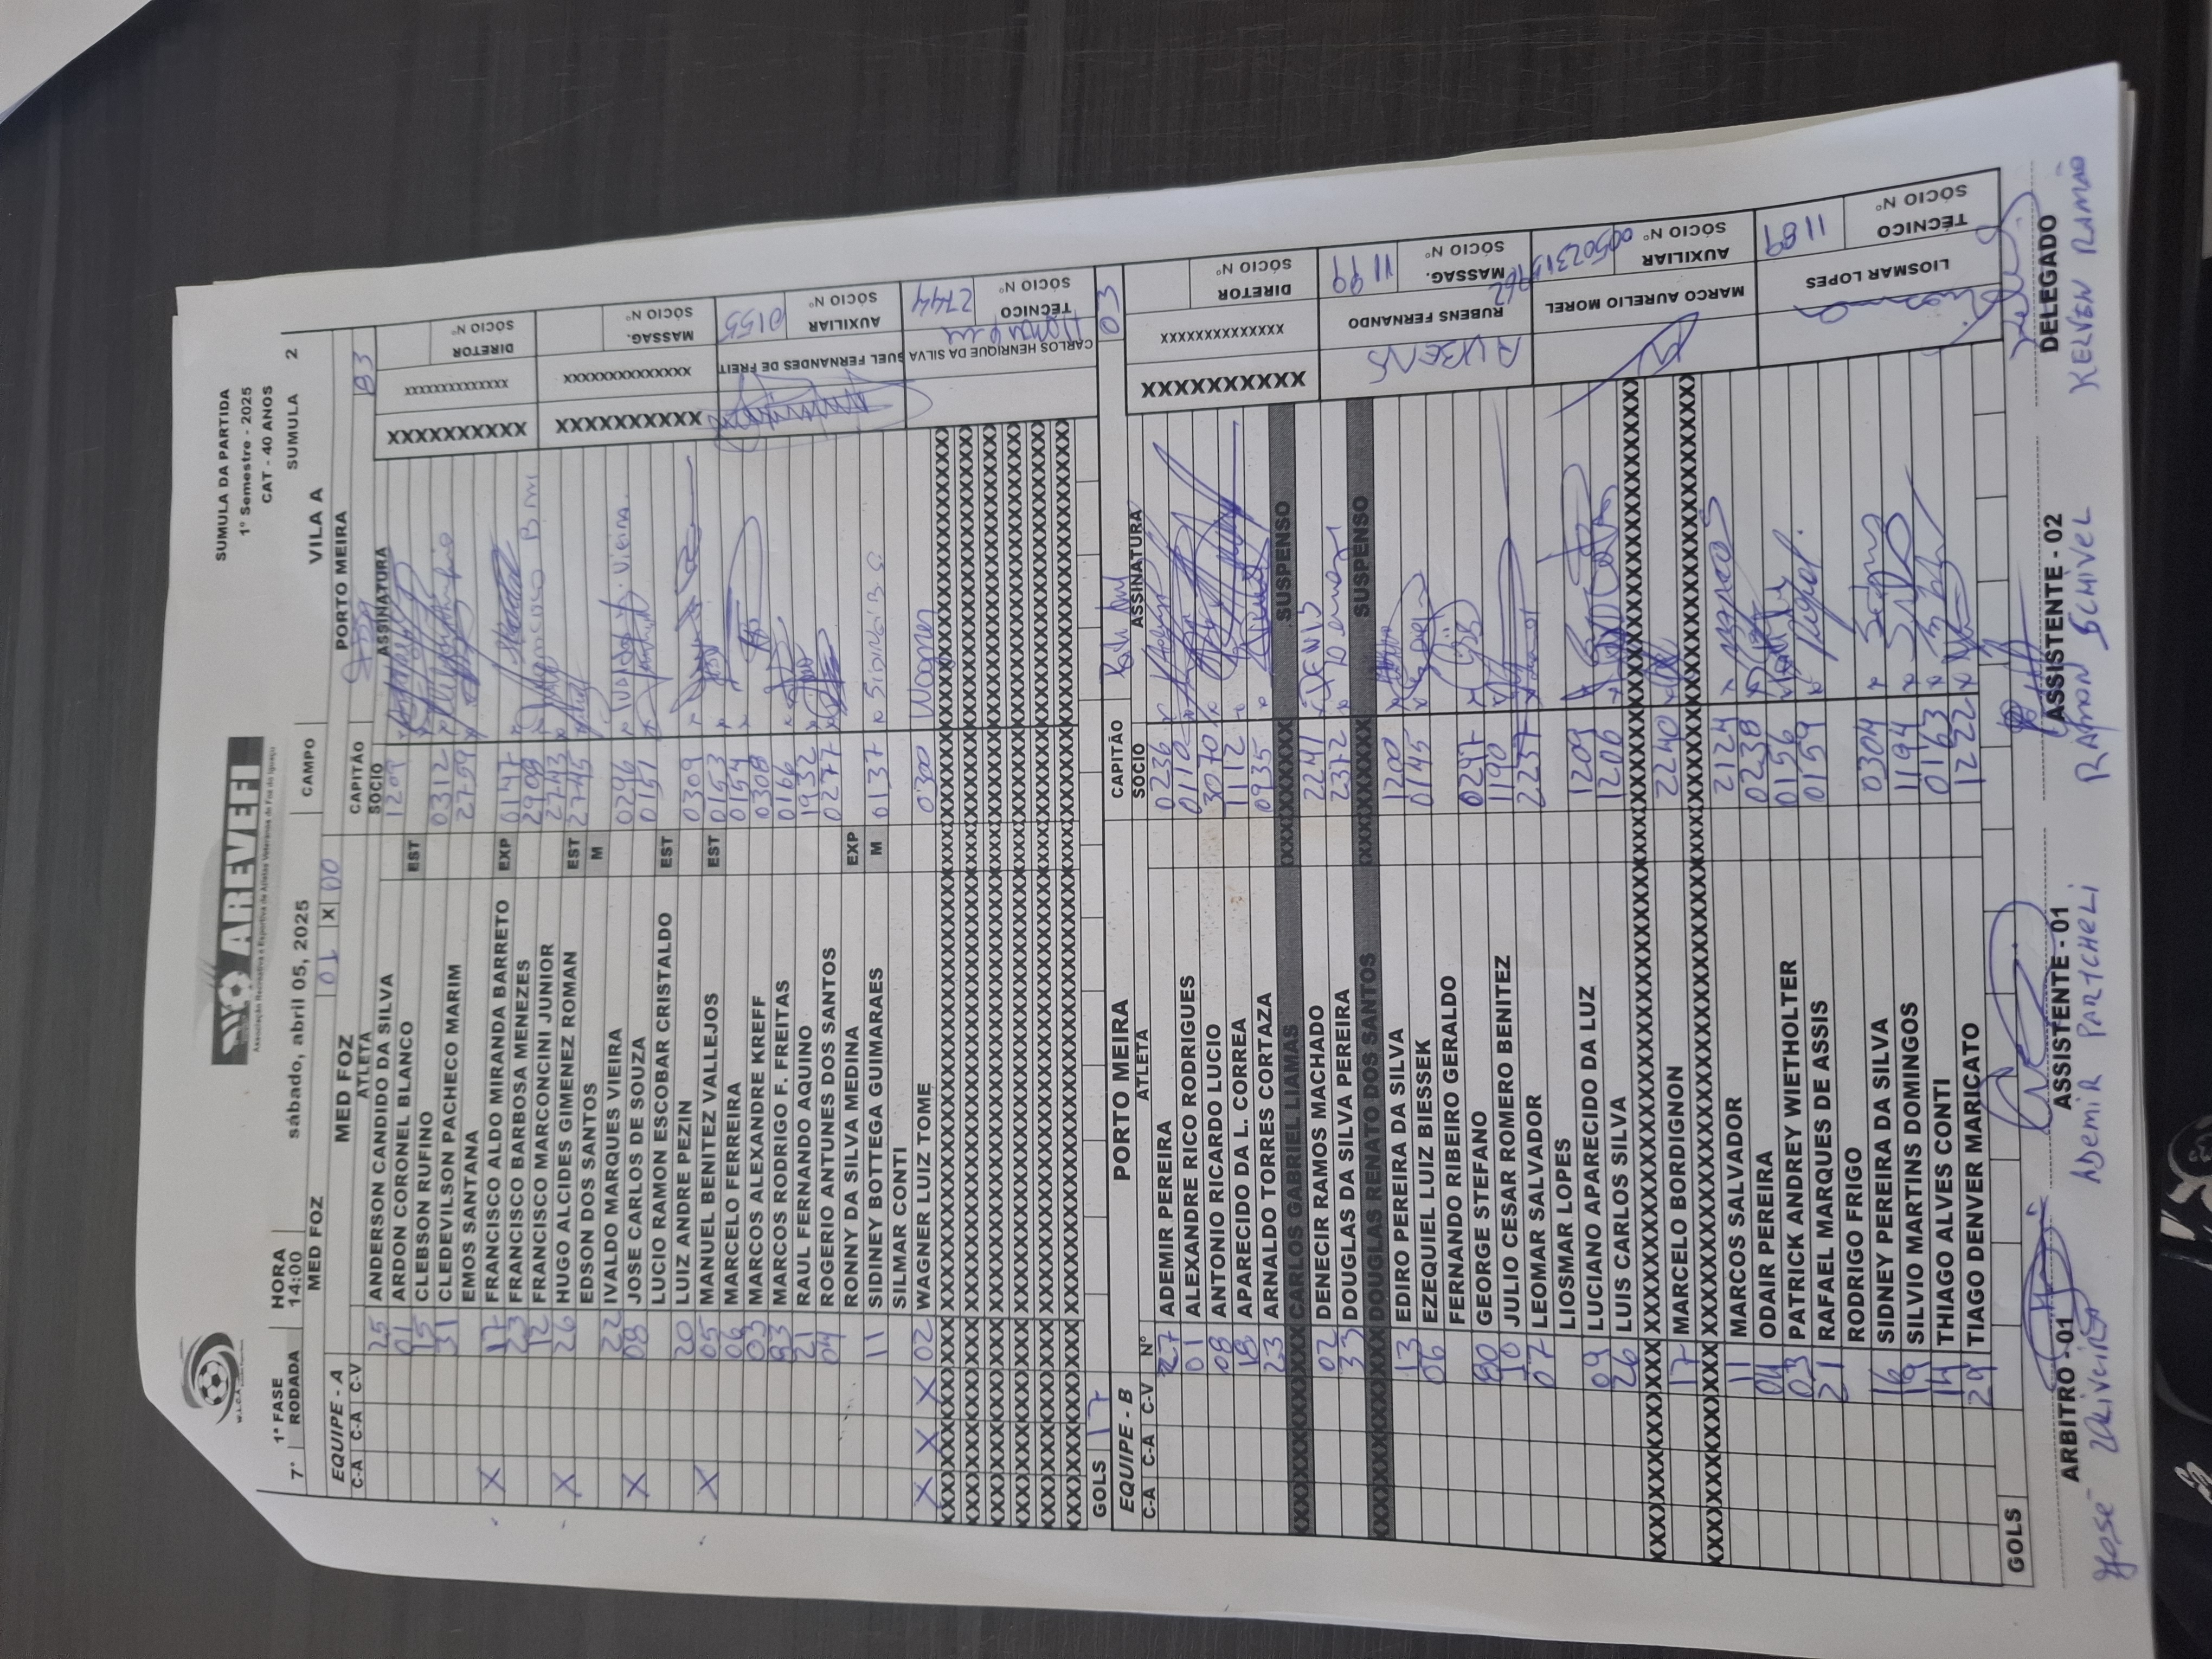 W.L.C.A
AREVEFI
Associação Recreativa e Esportiva de Atletas Veteranos de Foz do Iguaçu
SUMULA DA PARTIDA
1º Semestre - 2025
CAT - 40 ANOS
1ª FASE HORA
7ª RODADA 14:00 sábado, abril 05, 2025 CAMPO VILA A SUMULA 2
MED FOZ 01 X 00 PORTO MEIRA
EQUIPE - A MED FOZ CAPITÃO 93
C-A C-A C-V ATLETA SÓCIO ASSINATURA
25 ANDERSON CANDIDO DA SILVA 1209
01 ARDON CORONEL BLANCO EST
15 CLEBSON RUFINO 0312
31 CLEDEVILSON PACHECO MARIM 2759
EMOS SANTANA
X 17 FRANCISCO ALDO MIRANDA BARRETO EXP 0147
23 FRANCISCO BARBOSA MENEZES 2909
12 FRANCISCO MARCONCINI JUNIOR 2743
X 26 HUGO ALCIDES GIMENEZ ROMAN EST 2745
EDSON DOS SANTOS M
22 IVALDO MARQUES VIEIRA 0296
X 08 JOSE CARLOS DE SOUZA 0151
LUCIO RAMON ESCOBAR CRISTALDO EST
20 LUIZ ANDRE PEZIN 0309
X 05 MANUEL BENITEZ VALLEJOS EST 0153
06 MARCELO FERREIRA 0154
03 MARCOS ALEXANDRE KREFF 0308
93 MARCOS RODRIGO F. FREITAS 0166
21 RAUL FERNANDO AQUINO 1932
04 ROGERIO ANTUNES DOS SANTOS 0277
RONNY DA SILVA MEDINA EXP
11 SIDINEY BOTTEGA GUIMARAES M 0137
SILMAR CONTI
X X X 02 WAGNER LUIZ TOME 0300 Wagner
XXXXXXXXXXX XXXXXXXXXXXXXX DIRETOR SÓCIO Nº
XXXXXXXXXXX XXXXXXXXXXXXXX MASSAG. SÓCIO Nº
GUEL FERNANDES DE FREIT AUXILIAR SÓCIO Nº 0155
CARLOS HENRIQUE DA SILVA TÉCNICO SÓCIO Nº 2744
GOLS 17 03
EQUIPE - B PORTO MEIRA CAPITÃO
C-A C-A C-V Nº ATLETA SÓCIO ASSINATURA
27 ADEMIR PEREIRA 0236
01 ALEXANDRE RICO RODRIGUES 0110
08 ANTONIO RICARDO LUCIO 3070
18 APARECIDO DA L. CORREA 1112
23 ARNALDO TORRES CORTAZA 0935
CARLOS GABRIEL LIAMAS SUSPENSO
02 DENECIR RAMOS MACHADO 2241
33 DOUGLAS DA SILVA PEREIRA 2372
DOUGLAS RENATO DOS SANTOS SUSPENSO
13 EDIRO PEREIRA DA SILVA 1200
06 EZEQUIEL LUIZ BIESSEK 0145
FERNANDO RIBEIRO GERALDO
80 GEORGE STEFANO 0247
10 JULIO CESAR ROMERO BENITEZ 1190
07 LEOMAR SALVADOR 2257
LIOSMAR LOPES
09 LUCIANO APARECIDO DA LUZ 1209
26 LUIS CARLOS SILVA 1206
17 MARCELO BORDIGNON 2240
11 MARCOS SALVADOR 2124 Marcos
04 ODAIR PEREIRA 0238
03 PATRICK ANDREY WIETHOLTER 0156
21 RAFAEL MARQUES DE ASSIS 0159
RODRIGO FRIGO
16 SIDNEY PEREIRA DA SILVA 0304
19 SILVIO MARTINS DOMINGOS 1194
14 THIAGO ALVES CONTI 0163
29 TIAGO DENVER MARICATO 1222
XXXXXXXXXXX XXXXXXXXXXXXXX DIRETOR SÓCIO Nº
RUBENS RUBENS FERNANDO MASSAG. SÓCIO Nº 1199
MARCO AURELIO MOREL AUXILIAR SÓCIO Nº
LIOSMAR LOPES TÉCNICO SÓCIO Nº 1189
GOLS
ARBITRO - 01 ASSISTENTE - 01 ASSISTENTE - 02 DELEGADO
José Oliveira ADEMIR PARTCHELI RAMON SCHIVEL KELVEN RAMÃO